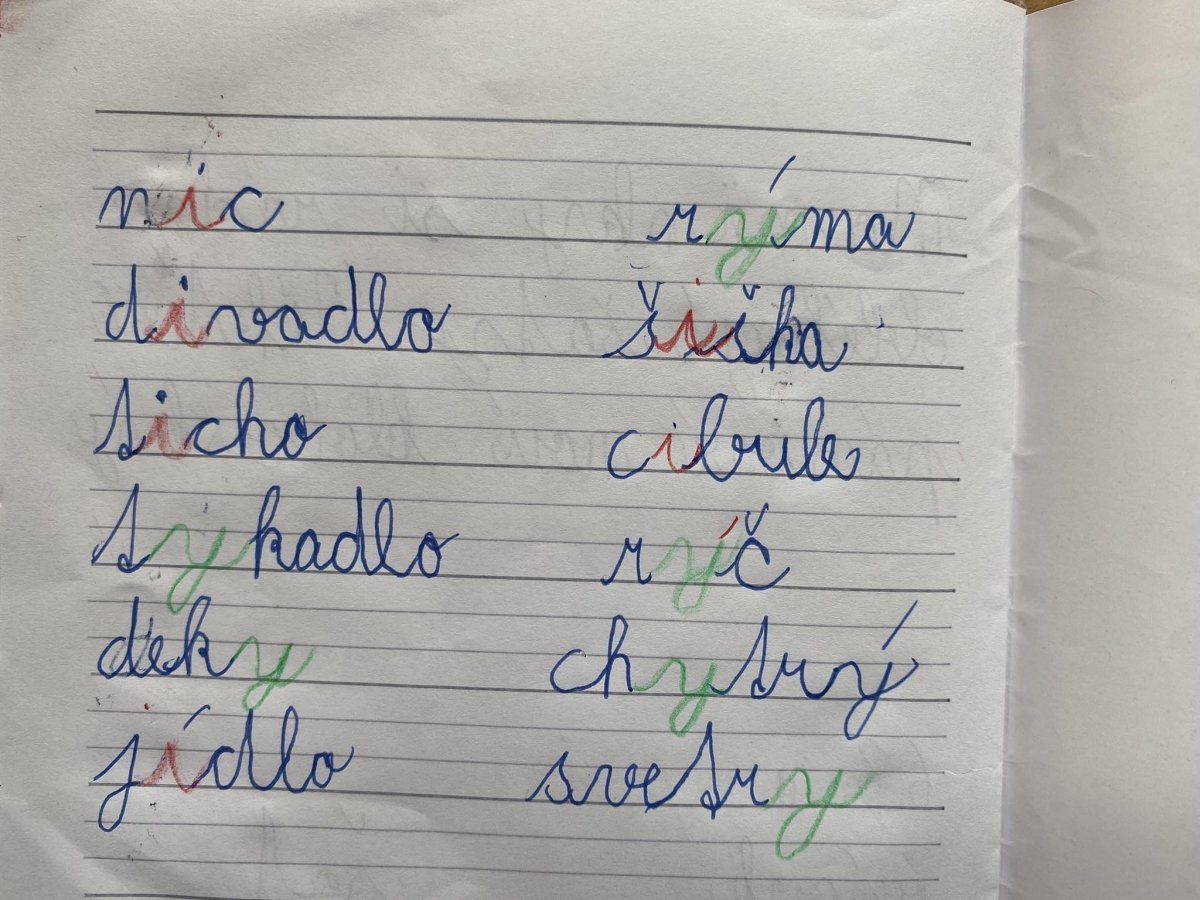 nic
divadlo
ticho
tykadlo
deky
jídlo
rýma
šiška
cibule
rýč
chytrý
svetry